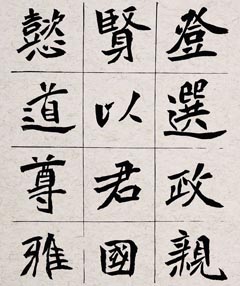 登選政親
賢以君國
懿道尊雅